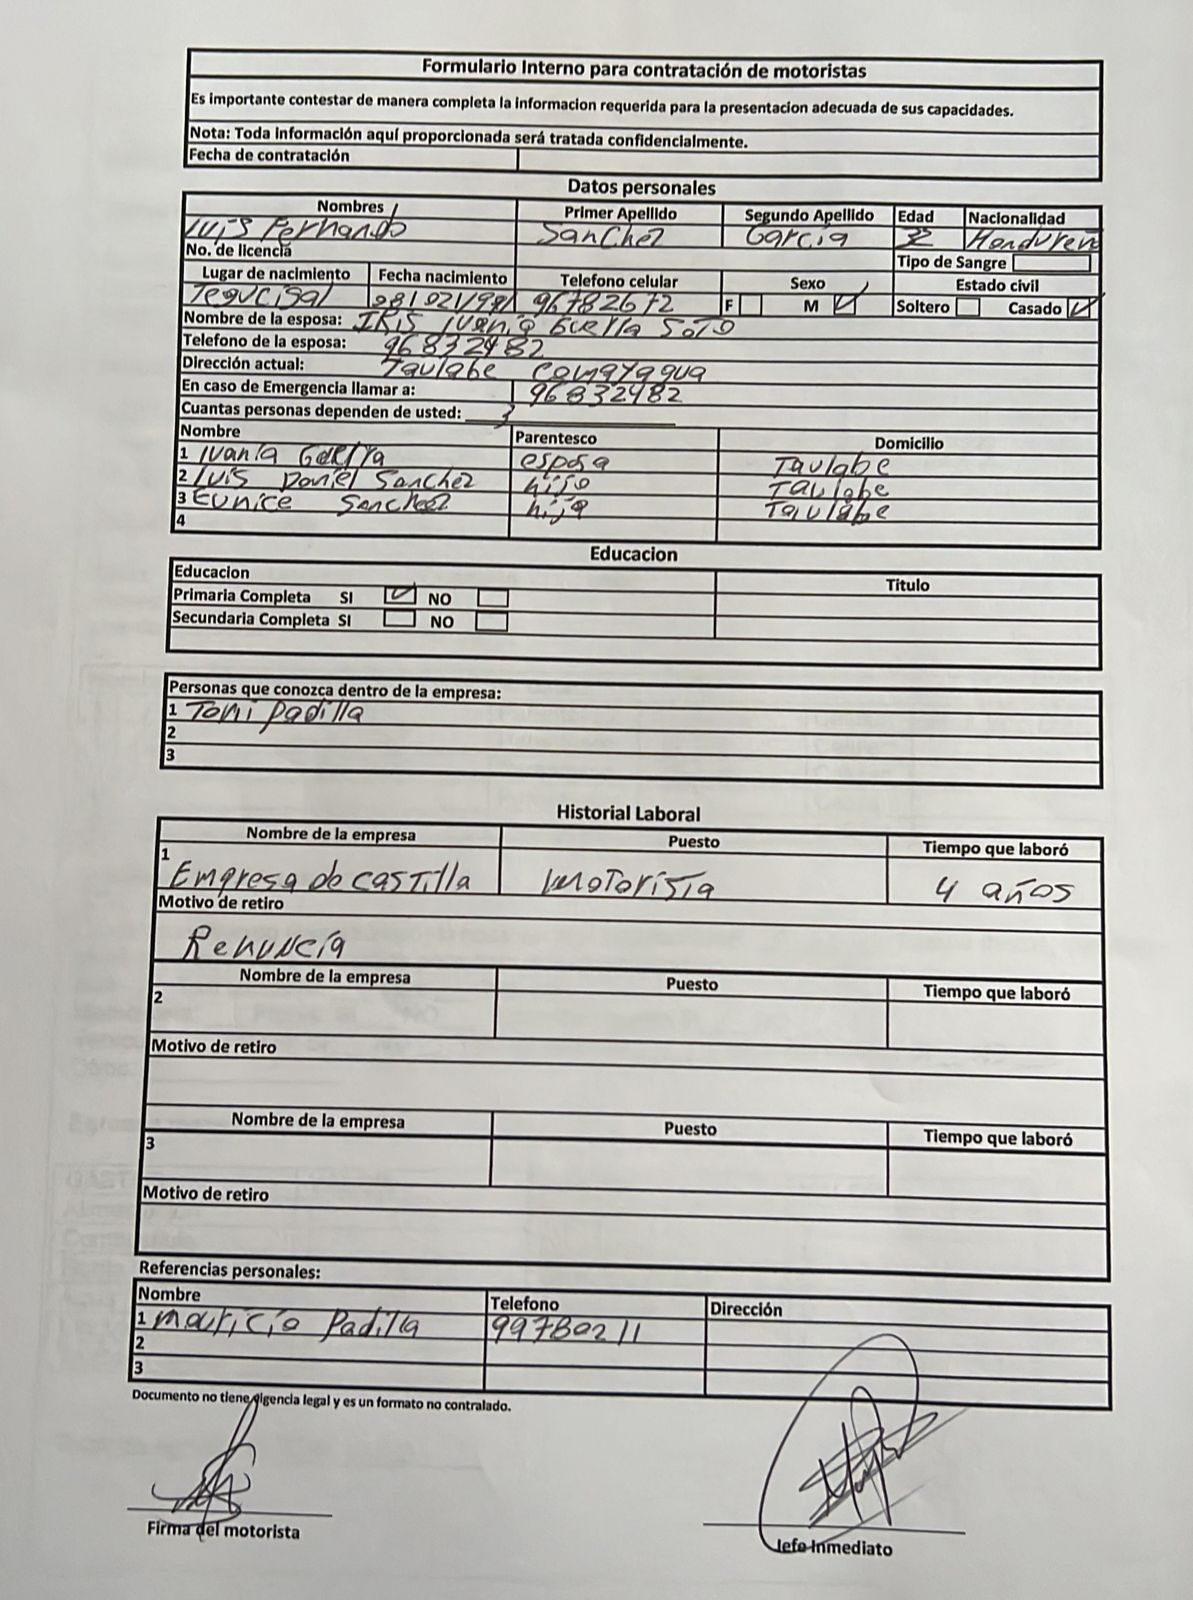 Formulario Interno para contratación de motoristas
Es importante contestar de manera completa la informacion requerida para la presentacion adecuada de sus capacidades.
Nota: Toda información aquí proporcionada será tratada confidencialmente.
Fecha de contratación
Datos personales
Nombres Primer Apellido Segundo Apellido Edad Nacionalidad
Luis Fernando Sanchez Garcia 32 Hondureñ
No. de licencia Tipo de Sangre
Lugar de nacimiento Fecha nacimiento Telefono celular Sexo Estado civil
Tegucigal 96782672 F M Soltero Casado
Nombre de la esposa: IRIS Ivania Guerra Soto
Telefono de la esposa: 96832482
Dirección actual: Taulabe Comayagua
En caso de Emergencia llamar a: 96832482
Cuantas personas dependen de usted: 3
Nombre Parentesco Domicilio
1 Ivania Guerra esposa Taulabe
2 Luis Daniel Sanchez hijo Taulabe
3 Eunice Sanchez hija Taulabe
4
Educacion
Educacion Titulo
Primaria Completa SI NO
Secundaria Completa SI NO
Personas que conozca dentro de la empresa:
1 Toni Padilla
2
3
Historial Laboral
Nombre de la empresa Puesto Tiempo que laboró
1
Empresa de CASTilla Motorista 4 años
Motivo de retiro
Renuncia
Nombre de la empresa Puesto Tiempo que laboró
2
Motivo de retiro
Nombre de la empresa Puesto Tiempo que laboró
3
Motivo de retiro
Referencias personales:
Nombre Telefono Dirección
1 Mauricio Padilla 99780211
2
3
Documento no tiene vigencia legal y es un formato no contralado.
Firma del motorista Jefe Inmediato